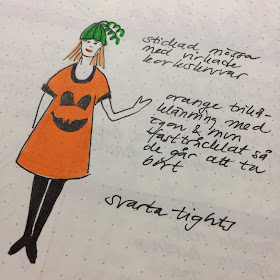 stickad mössa
med virkade
korkskruvar
orange trikå-
klänning med
ögon & mun
fasttråcklat så
de går att ta
bort
svarta tights